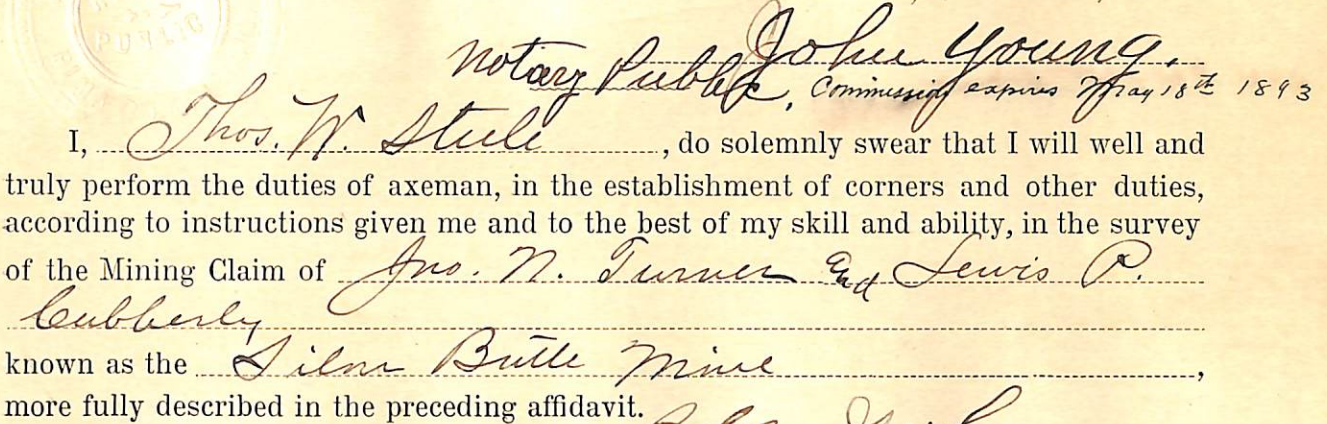 PUBLIC
John Young.
Notary Public, Commission expires May 18th 1893
I, Thos. W. Steele, do solemnly swear that I will well and
truly perform the duties of axeman, in the establishment of corners and other duties,
according to instructions given me and to the best of my skill and ability, in the survey
of the Mining Claim of Jno. N. Turner and Lewis P.
Cubberly
known as the Silver Butte Mine,
more fully described in the preceding affidavit.